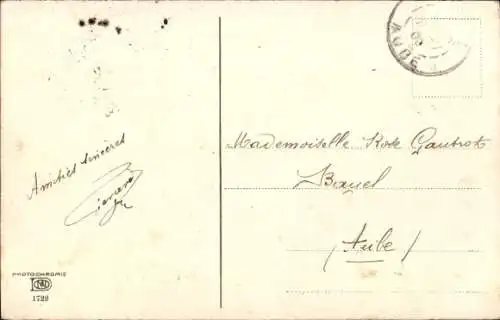 Amitiés sincères
Mademoiselle Rose Gautrot
Bayel
(Aube)
AUBE
PHOTOCHROMIE
1729